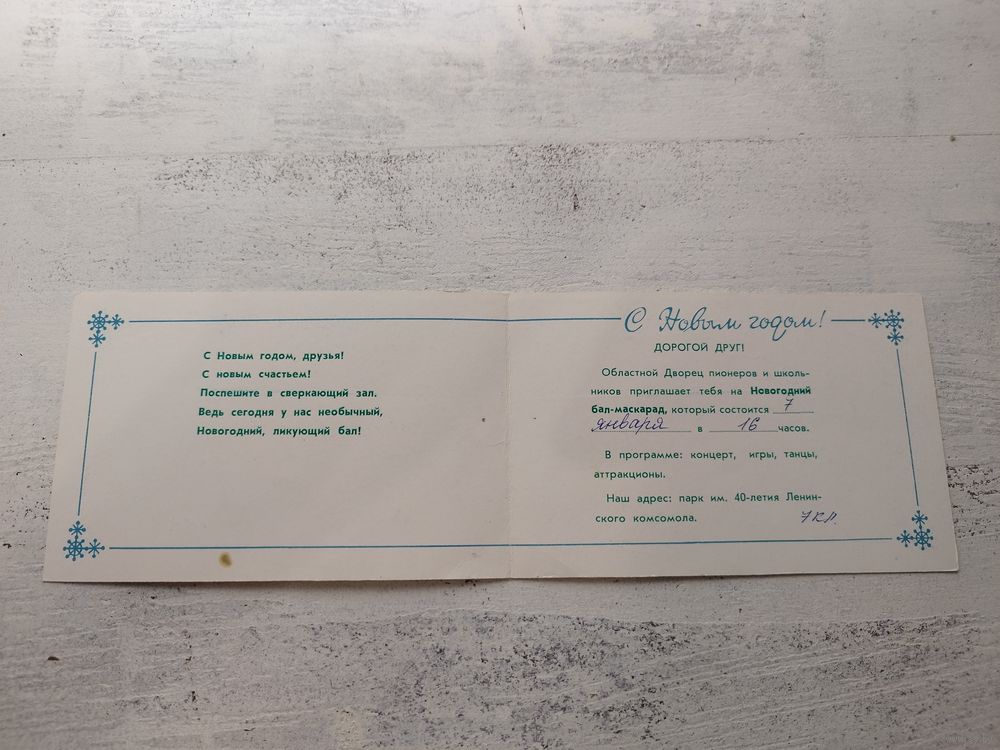 С Новым годом, друзья!
С новым счастьем!
Поспешите в сверкающий зал.
Ведь сегодня у нас необычный,
Новогодний, ликующий бал!
С Новым годом!
ДОРОГОЙ ДРУГ!
Областной Дворец пионеров и школь-
ников приглашает тебя на Новогодний
бал-маскарад, который состоится 7
января в 16 часов.
В программе: концерт, игры, танцы,
аттракционы.
Наш адрес: парк им. 40-летия Ленин-
ского комсомола.
7 кл.